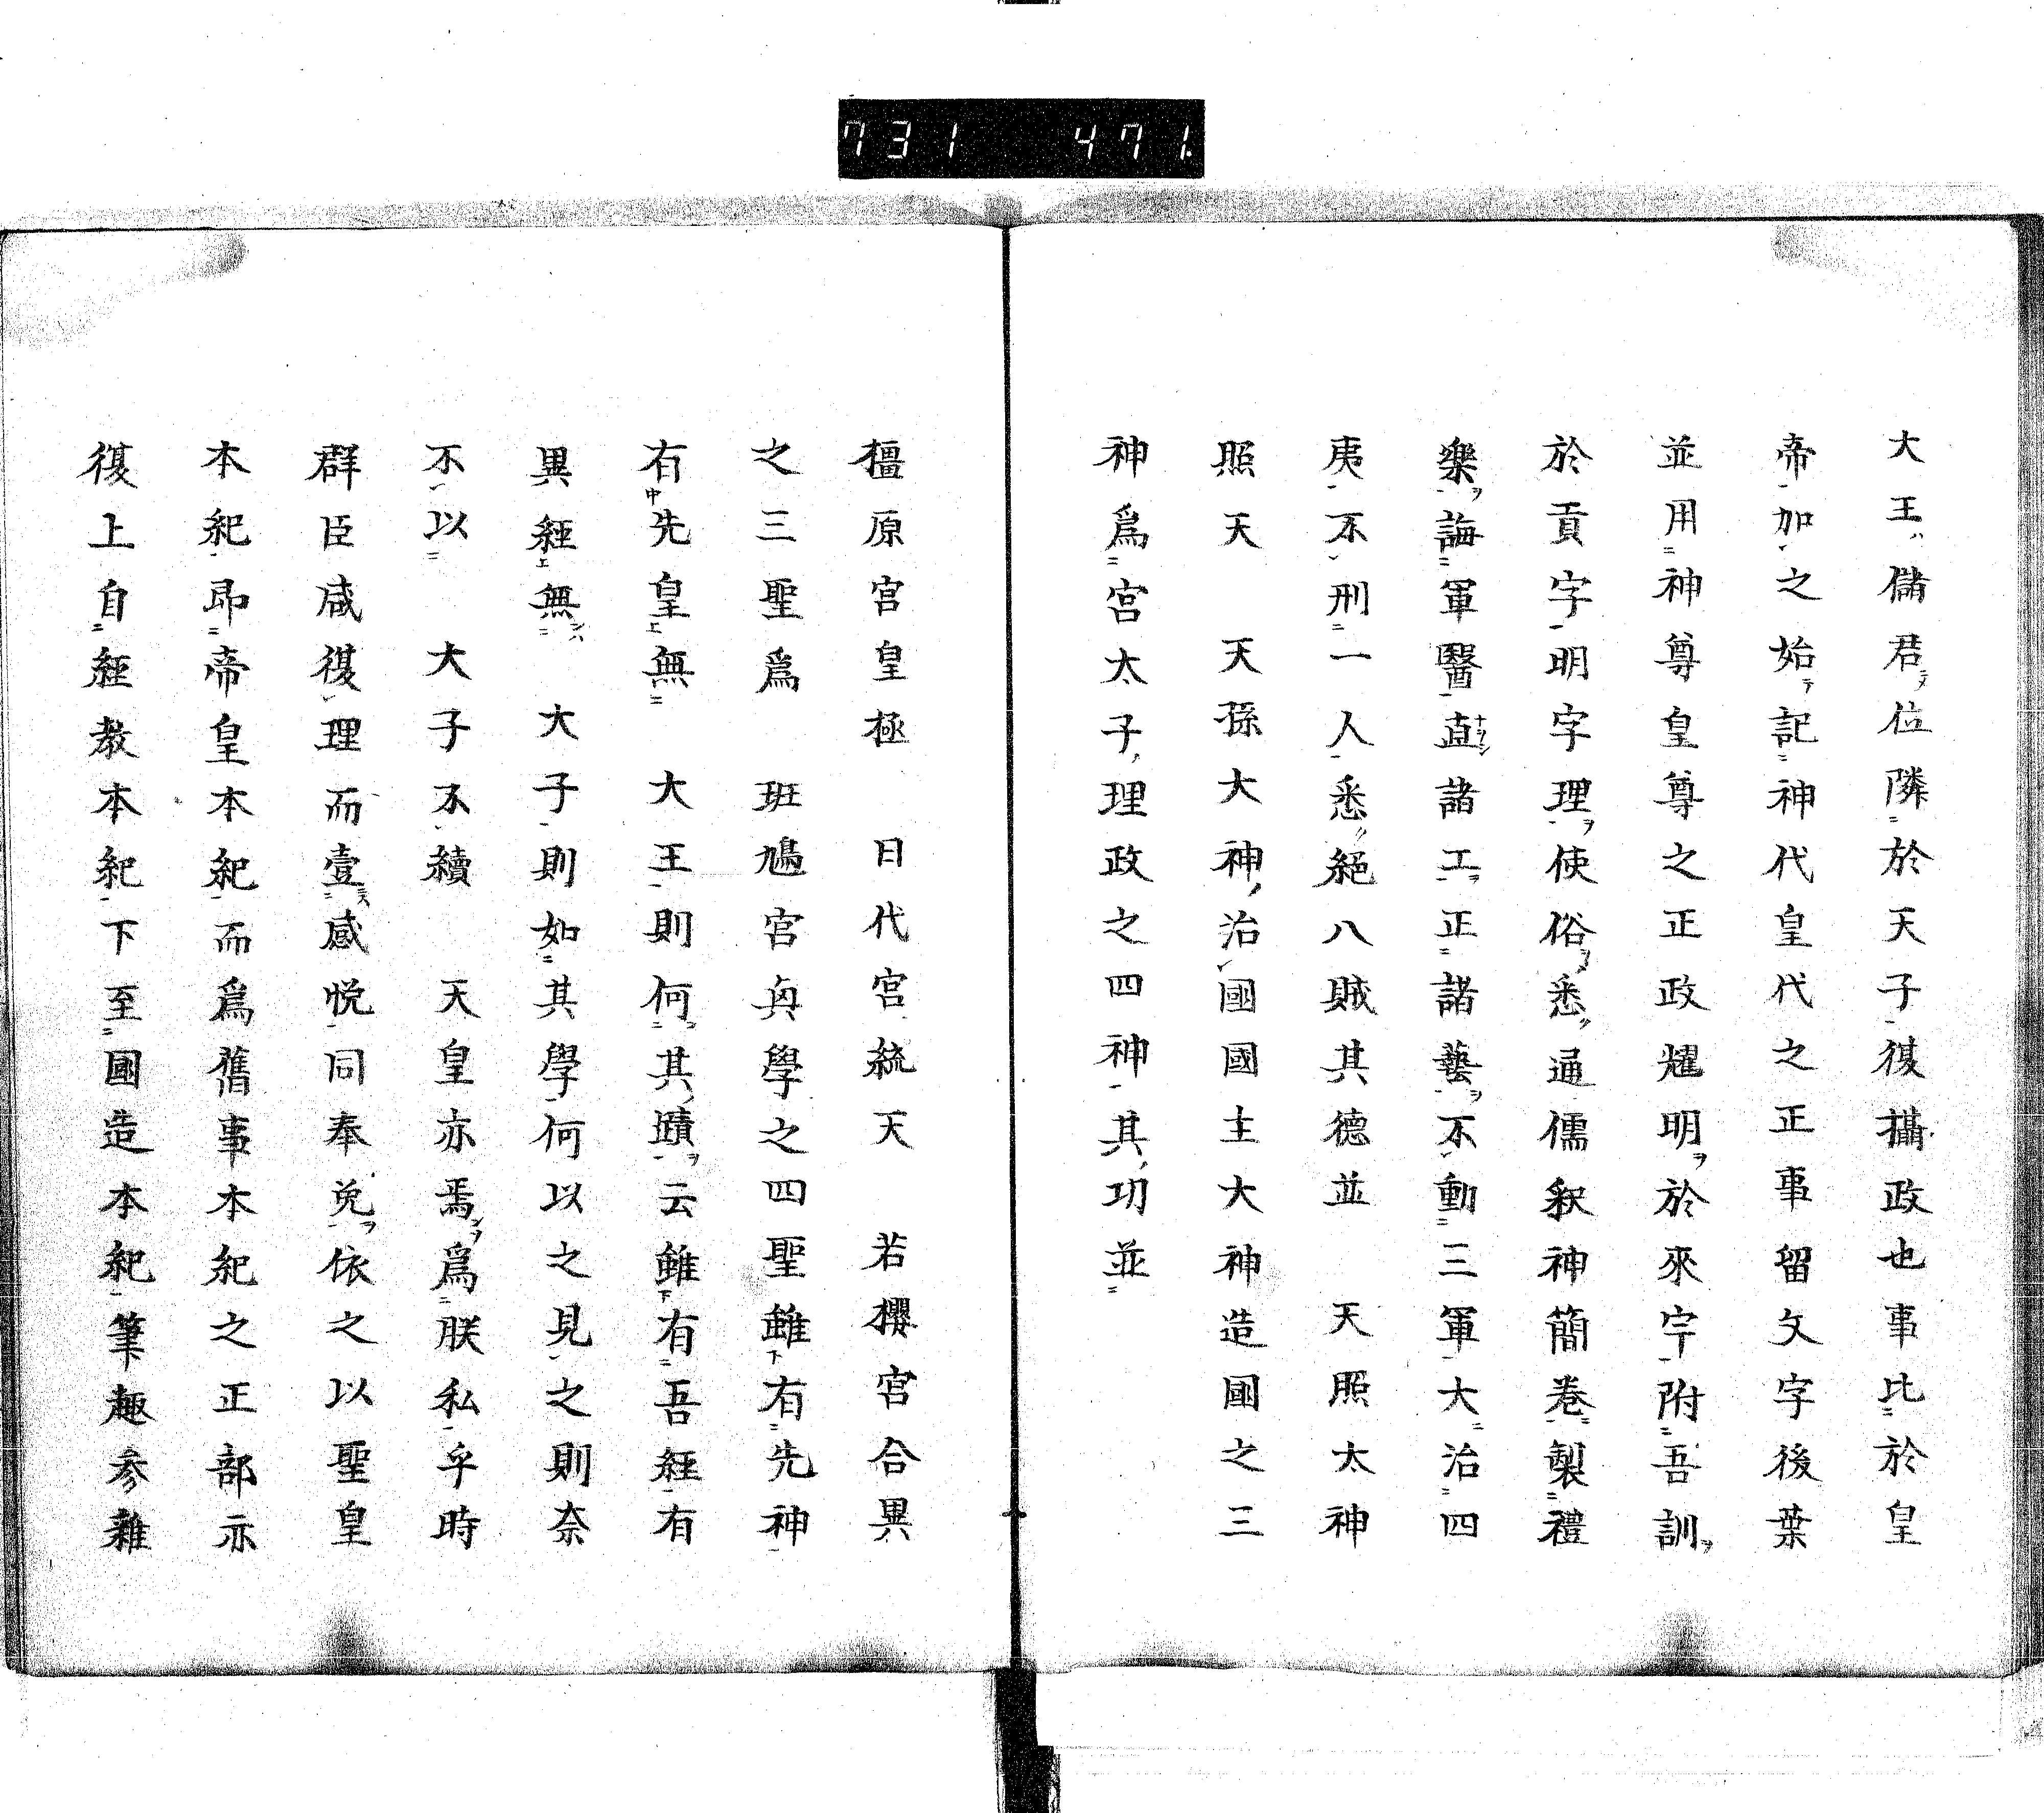 731 471
大王儲君位隣於天子復攝政也事比於皇
帝加之始記神代皇代之正事留文字後葉
並用神尊皇尊之正政耀明於來字附吾訓
於貢字明字理使俗悉通儒釈神簡卷製禮
樂誨軍醫直諸工正諸藝不動三軍大治四
夷不刑一人悉絕八賊其德並 天照太神
照天 天孫大神治國國主大神造國之三
神爲宮太子理政之四神其功並
橿原宮皇極 日代宮統天 若櫻宮合異
之三聖爲 班鳩宮典學之四聖雖有先神
有先皇無 大王則何其蹟云雖有吾經有
異經無 大子則如其學何以之見之則奈
不以 大子不續 天皇亦焉爲朕私乎時
群臣咸復理而壹感悅同奉免依之以聖皇
本紀即帝皇本紀而爲舊事本紀之正部亦
復上自經教本紀下至國造本紀筆趣参雜